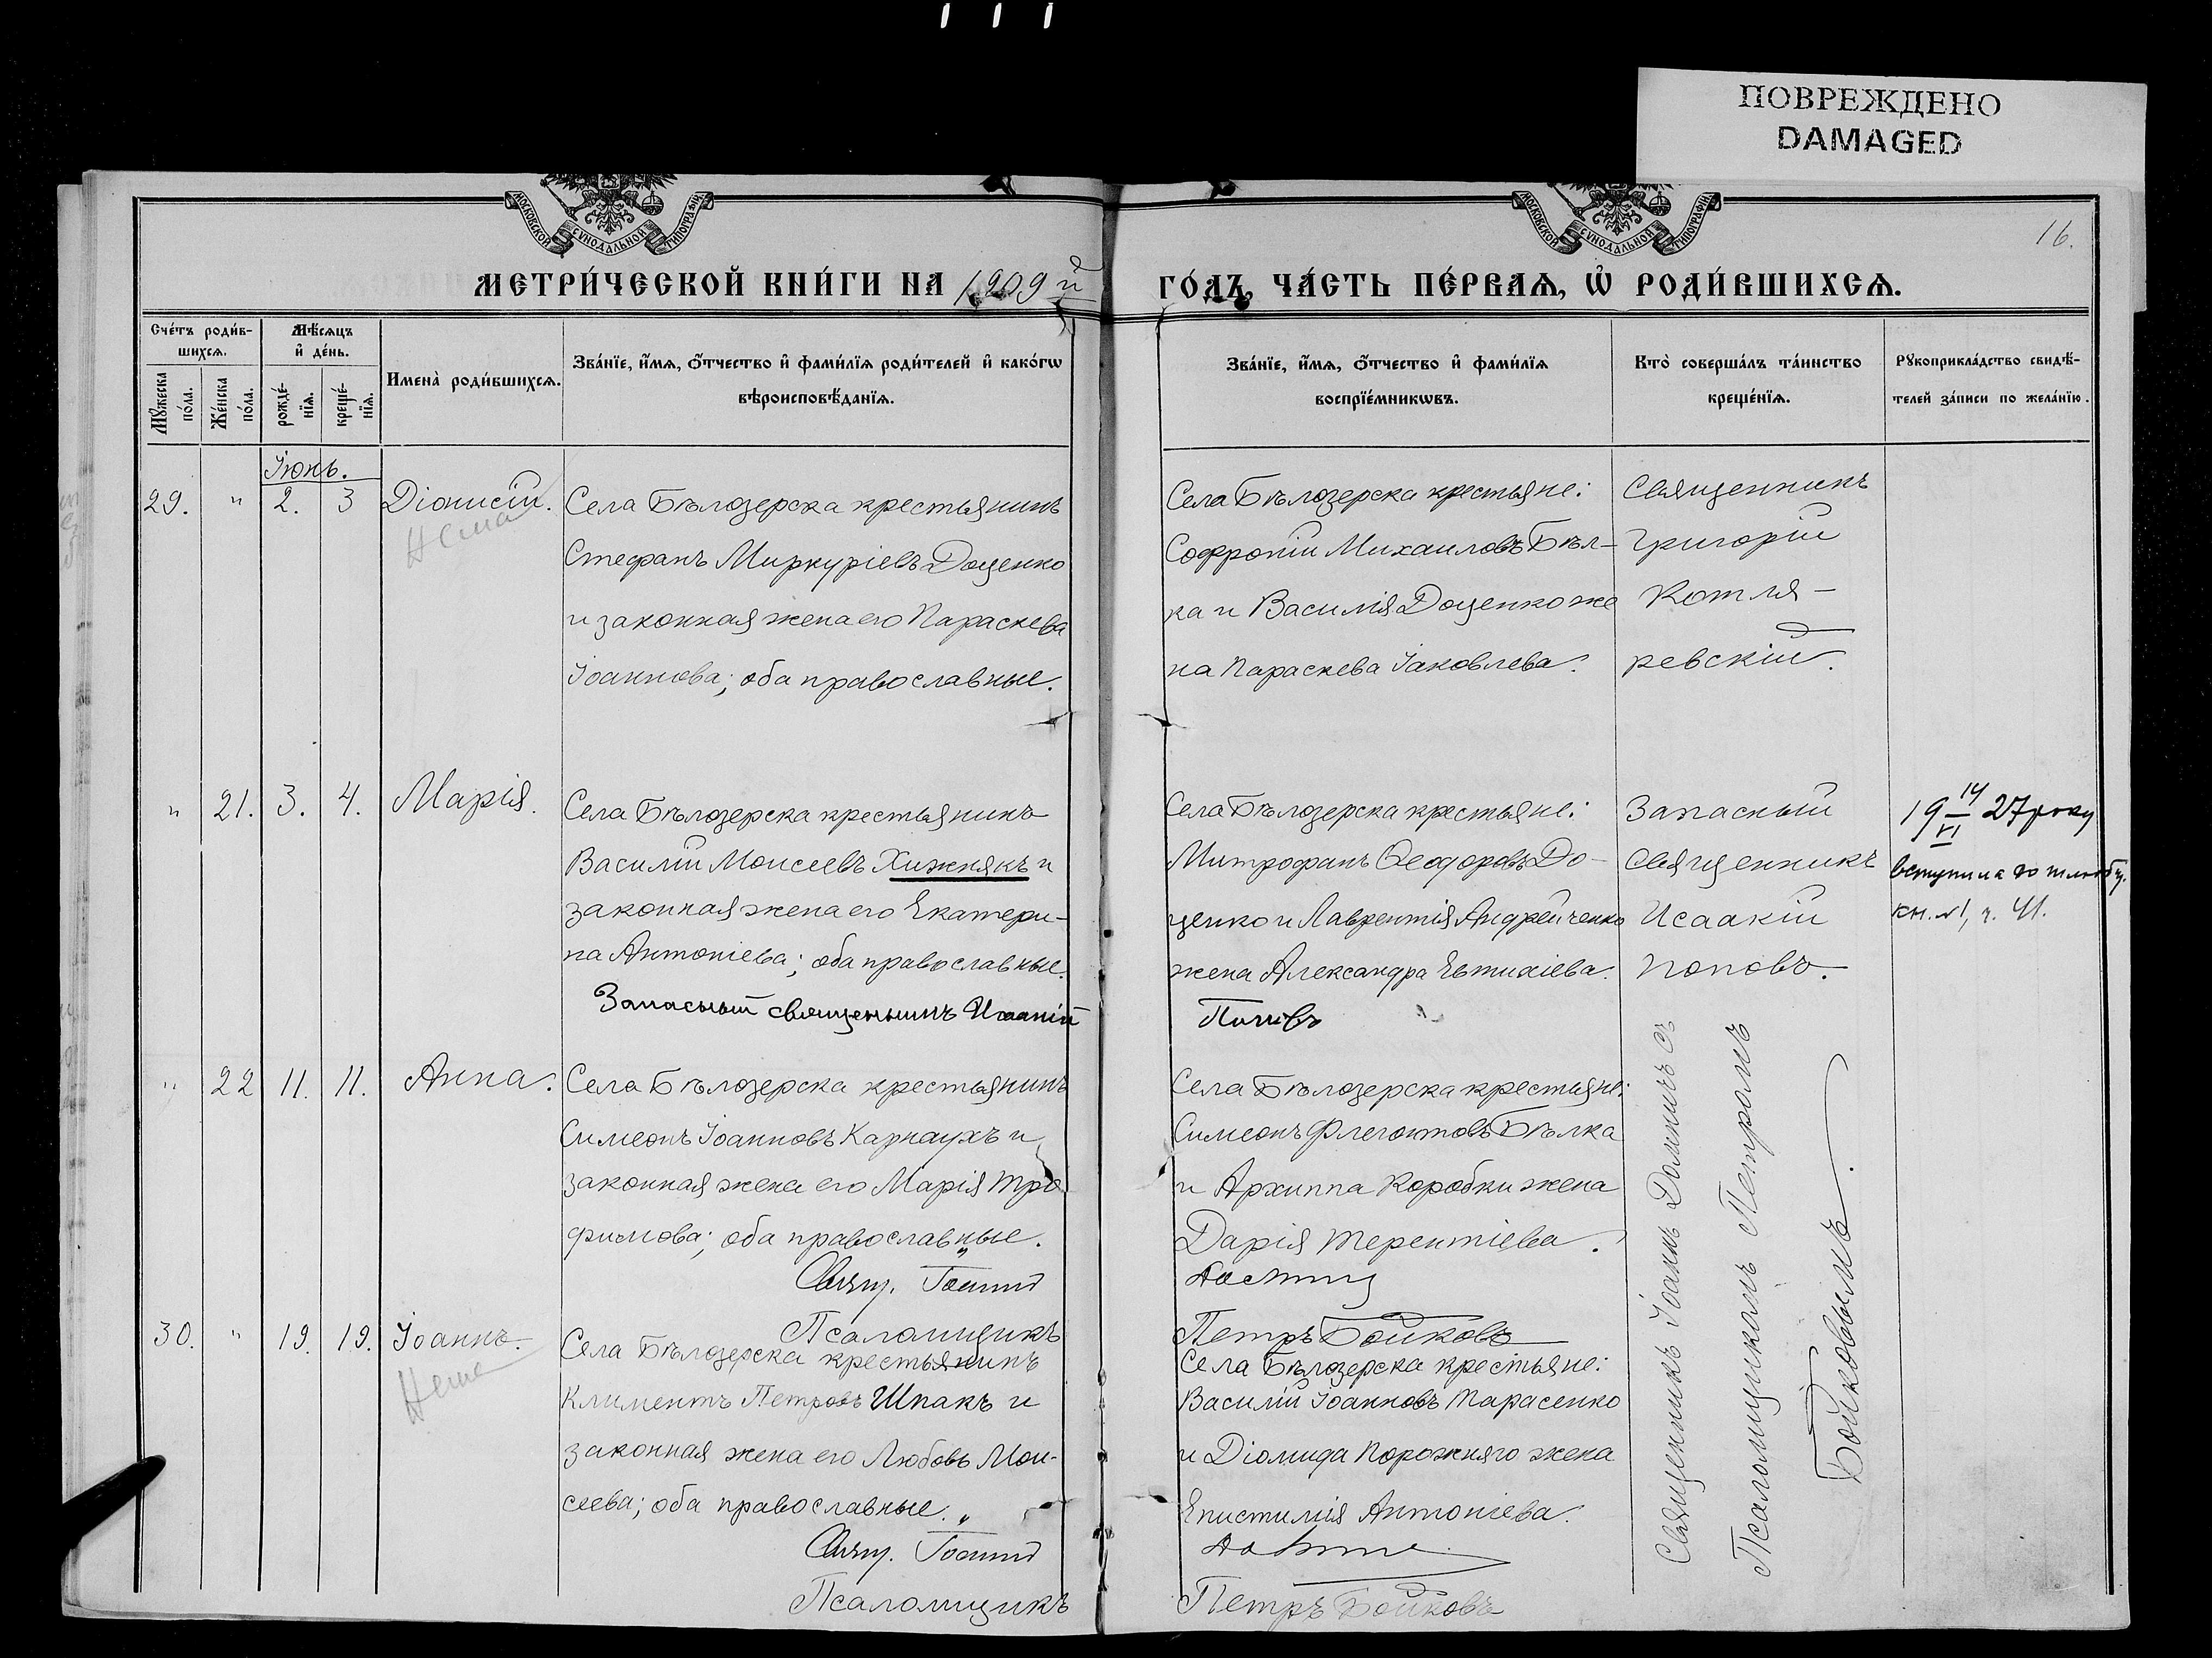 ПОВРЕЖДЕНО
DAMAGED
МОСКОВСКОЙ СѴНОДАЛЬНОЙ ТИПОГРАФІИ
МОСКОВСКОЙ СѴНОДАЛЬНОЙ ТИПОГРАФІИ
16.
МЕТРИ́ЧЕСКОЙ КНИ́ГИ НА 1909 й
ГО́ДЪ, ЧА́СТЬ ПЕ́РВАѦ, Ѡ҆ РОДИ́ВШИХСѦ.
Сче́тъ роди́в-
шихсѧ.
Мꙋ́жеска
по́ла.
Же́нска
по́ла.
Мѣ́сѧцъ
и҆ де́нь.
рожде́-
нїѧ.
креще́-
нїѧ.
Имена̀ роди́вшихсѧ.
Зва́нїе, и҆́мѧ, ѻ҆́тчество и҆ фами́лїѧ роди́телей и҆ како́гѡ
вѣроисповѣ́данїѧ.
Зва́нїе, и҆́мѧ, ѻ҆́тчество и҆ фами́лїѧ
воспрїе́мникѡвъ.
Кто̀ соверша́лъ та́инство
креще́нїѧ.
Рꙋкоприкла́дство свидѣ́-
телей за́писи по жела́нїю.
Іюнь.
29. " 2. 3 Діонисій.
Нема
Села Бѣлозерска крестьянинъ
Стефанъ Миркуріевъ Доценко
и законная жена его Параскева
Іоаннова; оба православные.
Села Бѣлозерска крестьяне:
Софроній Михаиловъ Бѣл-
ка и Василія Доценко же
на Параскева Іаковлева.
Священникъ
Григорій
Котля-
ревскій.
" 21. 3. 4. Марія.
Села Бѣлозерска крестьянинъ
Василій Моисеевъ Хижнякъ и
законная жена его Екатери-
на Антоніева; оба православные.
Запасный священникъ Исаакій
Села Бѣлозерска крестьяне:
Митрофанъ Ѳеодоровъ До-
ценко и Лаврентія Андрейченко
жена Александра Евтихіева.
Поповъ
Запасный
священникъ
Исаакій
Поповъ.
19 14/VI 27 року
вступила до шлюбу.
кн. №1, ч. 41.
" 22 11. 11. Анна.
Села Бѣлозерска крестьянинъ
Симеонъ Іоанновъ Карнаухъ и
законная жена его Марія Тро
фимова; оба православные.
Свящ. Іоаннъ
Псаломщикъ
Села Бѣлозерска крестьяне:
Симеонъ Флегонтовъ Бѣлка
и Архиппа Коробки жена
Дарія Терентіева.
Петръ Бойковъ
30. " 19. 19. Іоаннъ.
Села Бѣлозерска крестьянинъ
Климентъ Петровъ Шпакъ и
законная жена его Любовь Мои-
сеева; оба православные.
Свящ. Іоаннъ
Псаломщикъ
Села Бѣлозерска крестьяне:
Василій Іоанновъ Тарасенко
и Діомида Порожняго жена
Епистимія Антоніева.
Петръ Бойковъ
Священникъ Іоаннъ съ
Псаломщикомъ Петромъ
Бойковымъ.